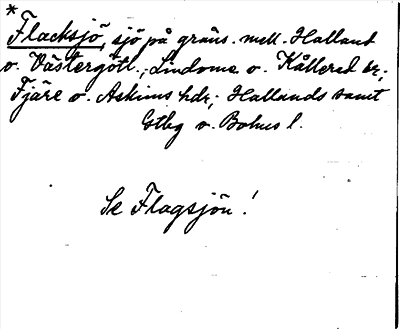 *
Flacksjö, sjö på gräns. mell. Halland
o. Västergötl.; Lindome o. Kållered sr;
Fjäre o. Askims hdr; Hallands samt
Gtbg o. Bohus l.
Se Flagsjön!